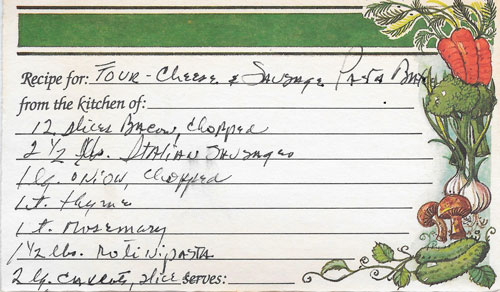 Recipe for: Four-Cheese & Sausage Pasta Bake
from the kitchen of:
12 slices Bacon, chopped
2 1/2 lbs. Italian Sausages
1 lg. onion, chopped
1 t. thyme
1 t. rosemary
1 1/2 lbs. rotini pasta
2 lg. carrots, slice serves: